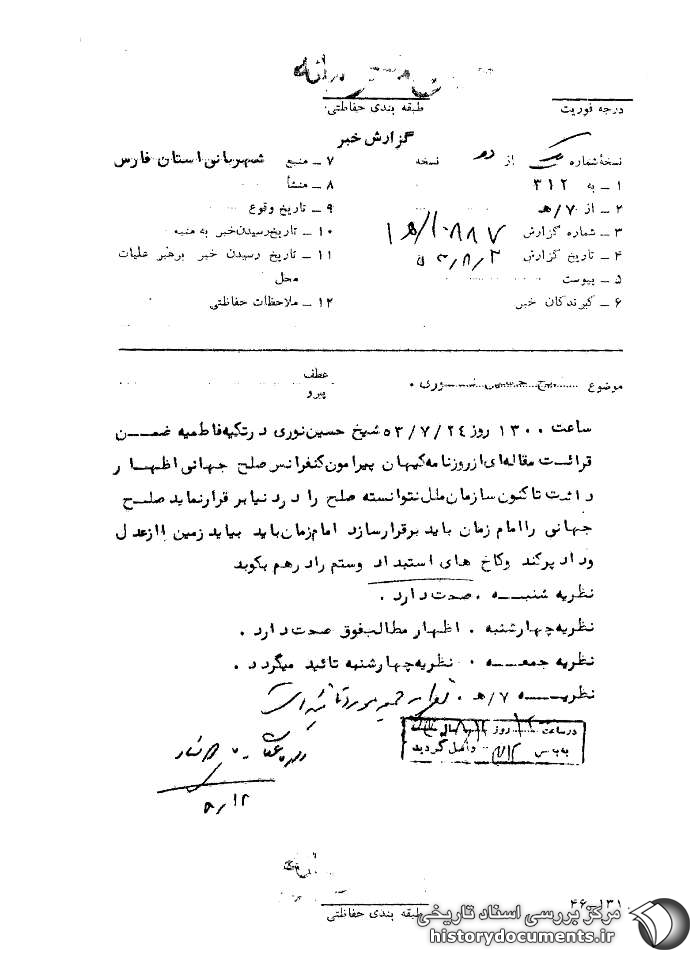 درجه فوریت
طبقه بندی حفاظتی:
گزارش خبر
نسخه شماره یک از دو نسخه
۱ ـ به ۳۱۲
۲ ـ از ۷/هـ
۳ ـ شماره گزارش ۱۰۸۸۷/هـ۱
۴ ـ تاریخ گزارش
۵ ـ پیوست
۶ ـ گیرندگان خبر
۷ ـ منبع شهربانی استان فارس
۸ ـ منشأ
۹ ـ تاریخ وقوع
۱۰ ـ تاریخ رسیدن خبر به منبع
۱۱ ـ تاریخ رسیدن خبر برهبر عملیات
محل
۱۲ ـ ملاحظات حفاظتی
موضوع شیخ حسین نوری .
عطف
پیرو
ساعت ۱۳۰۰ روز ۵۳/۷/۲۴ شیخ حسین نوری در تکیه فاطمیه ضمن
قرائت مقاله‌ای از روزنامه کیهان پیرامون کنفرانس صلح جهانی اظهار
داشت تاکنون سازمان ملل نتوانسته صلح را در دنیا بر قرار نماید صلح
جهانی را امام زمان باید برقرار سازد امام زمان باید بیاید زمین را از عدل
وداد پر کند وکاخ های استبداد وستم را در هم بکوبد
نظریه شنبه . صحت دارد .
نظریه چهارشنبه . اظهار مطالب فوق صحت دارد .
نظریه جمعه . نظریه چهارشنبه تائید میگردد .
نظریه ۷/هـ . نظریه جمعه مورد تائید است
در ساعت روز
به بخش ۳۱۲ واصل گردید
۸/۱۲
طبقه بندی حفاظتی
۴۶ـ۱۳۱
مرکز بررسی اسناد تاریخی
historydocuments.ir